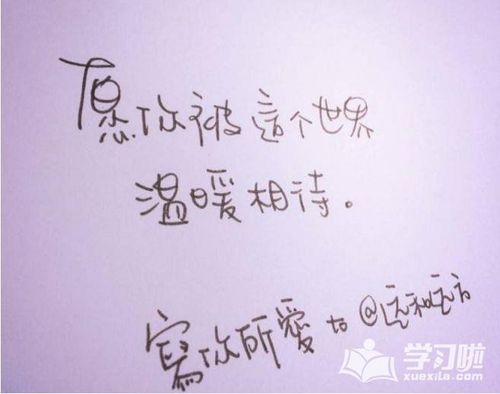 愿你被這个世界
温暖相待。
寫你所愛 to @
学习啦
xuexila.com